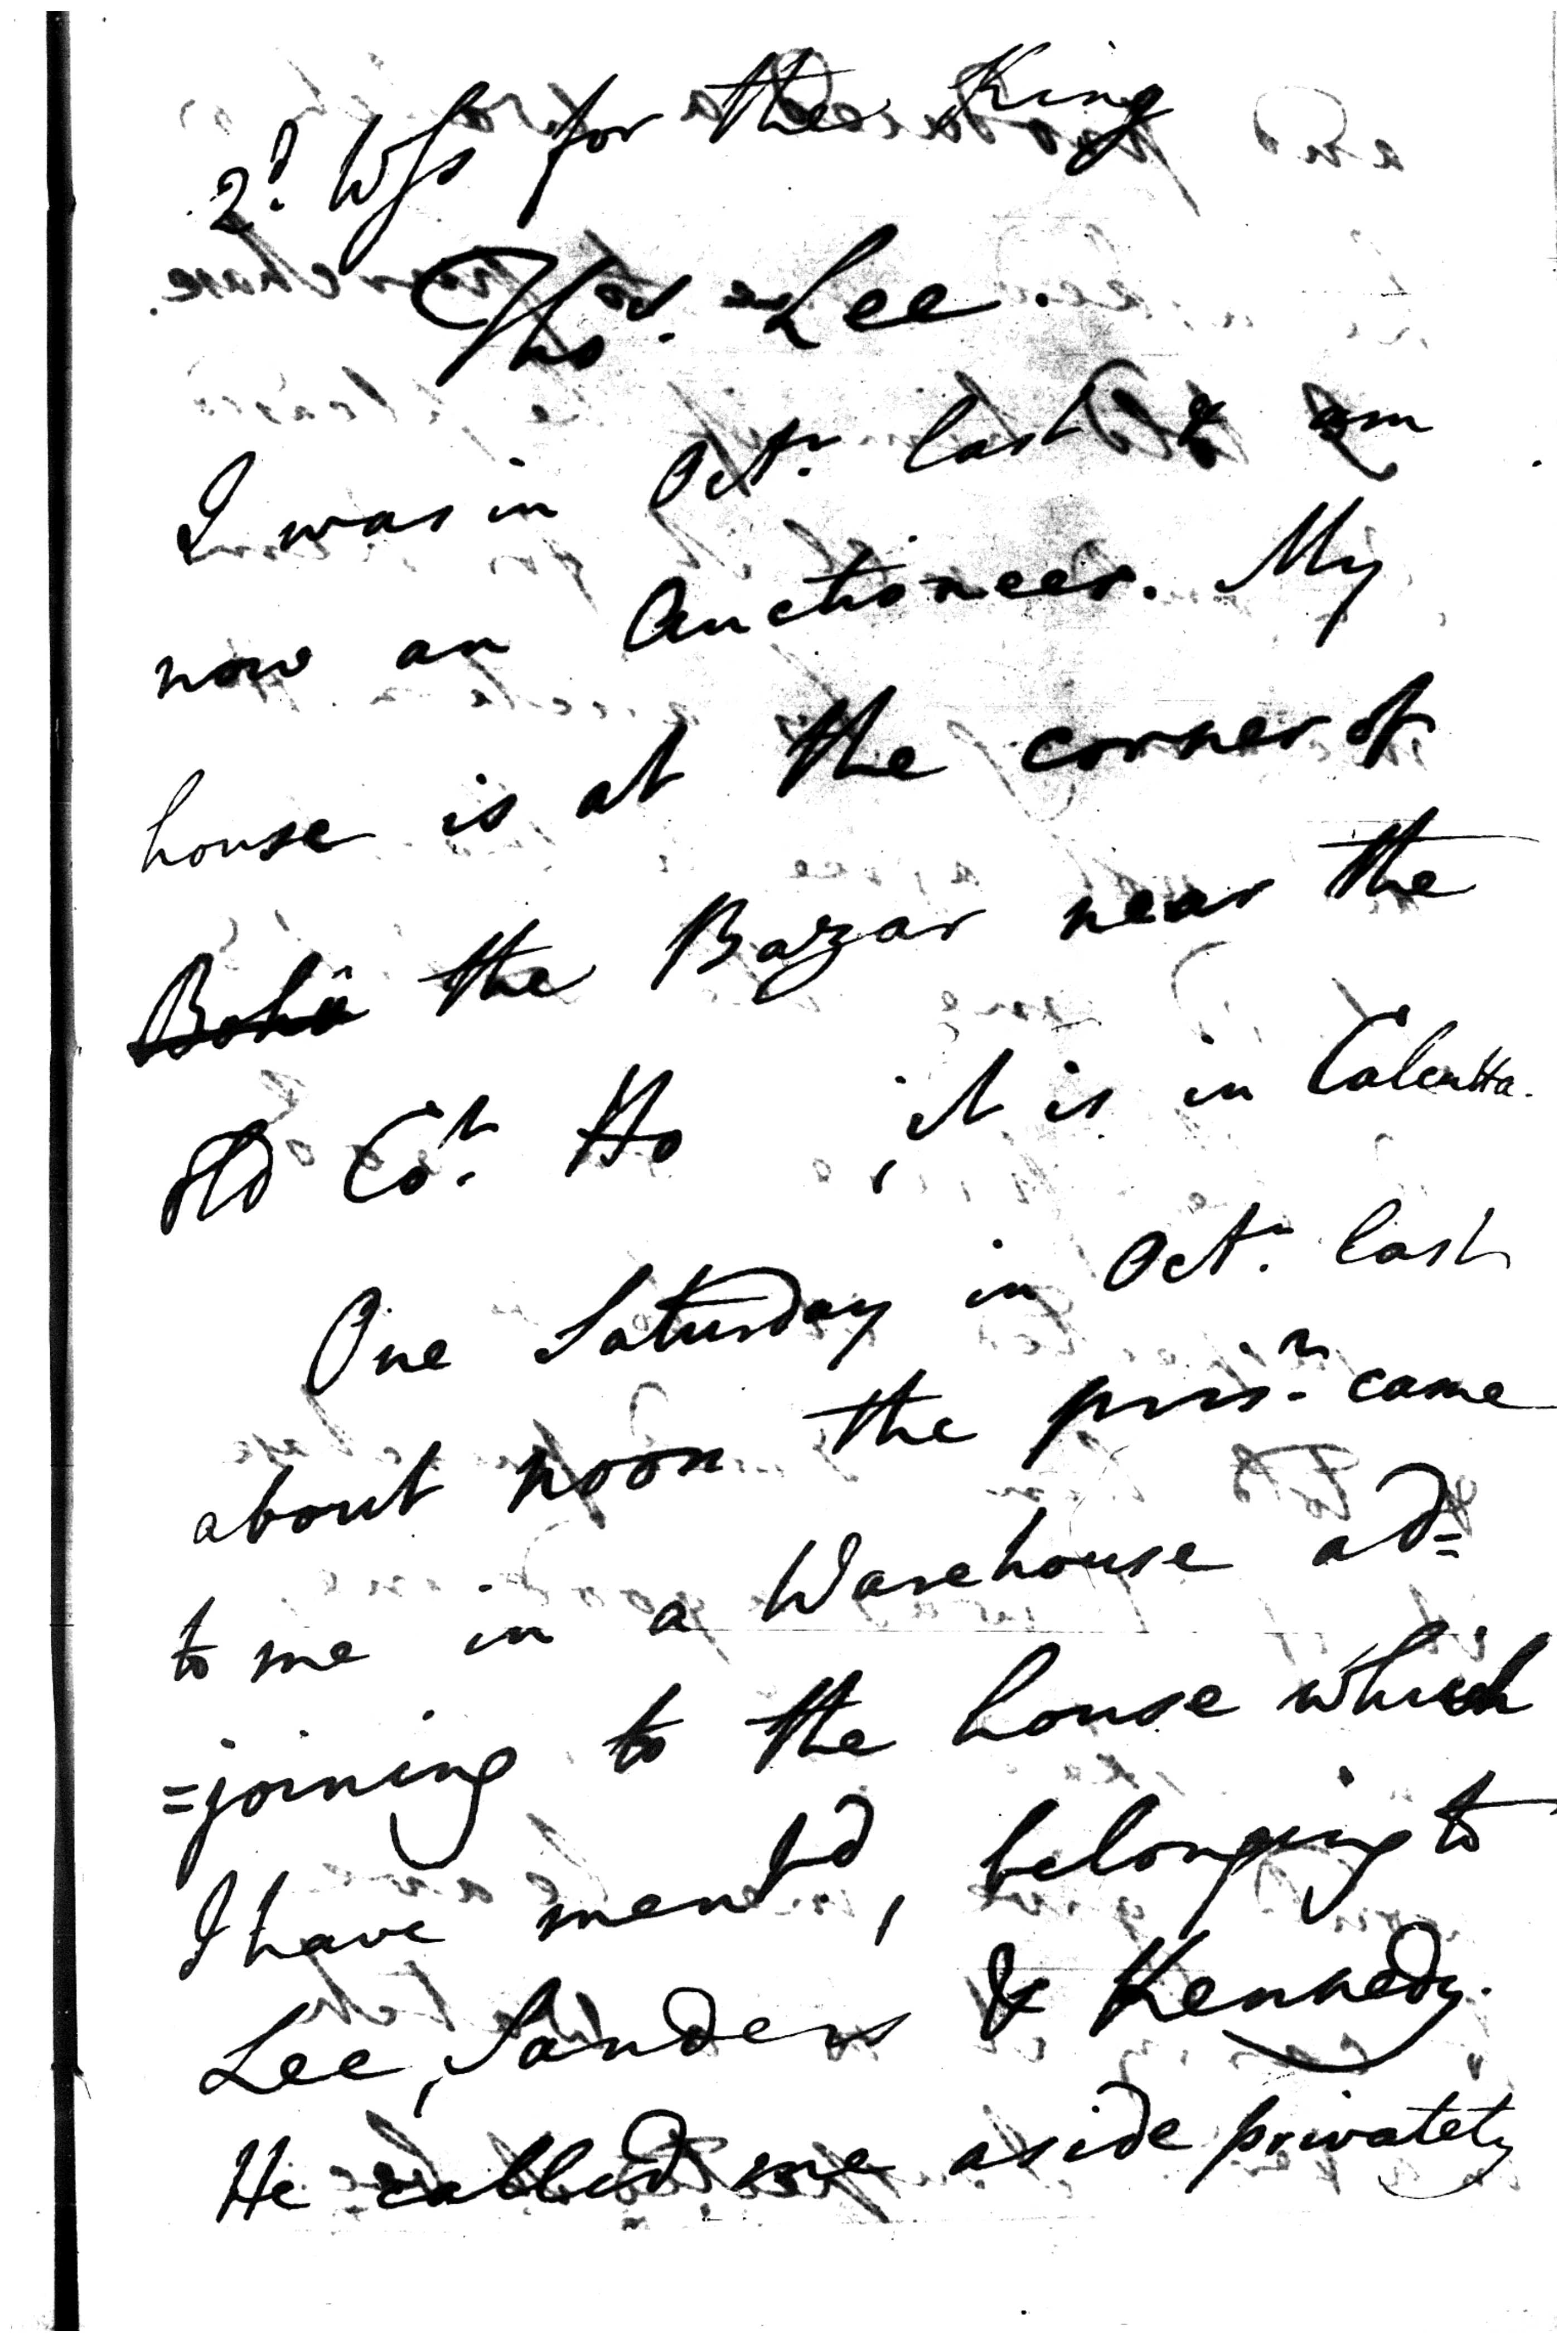 2d. Wss for the King
Thos. Lee.
I was in Octr. last & am
now an Auctioneer. My
house is at the corner of
the Bazar near the
old Cot. Ho , it is in Calcutta.
One Saturday in Octr. last
about noon the prisr. came
to me in a Warehouse ad=
=joining to the house which
I have ment'd, belonging to
Lee, Sanders & Kennedy.
He called me aside privately